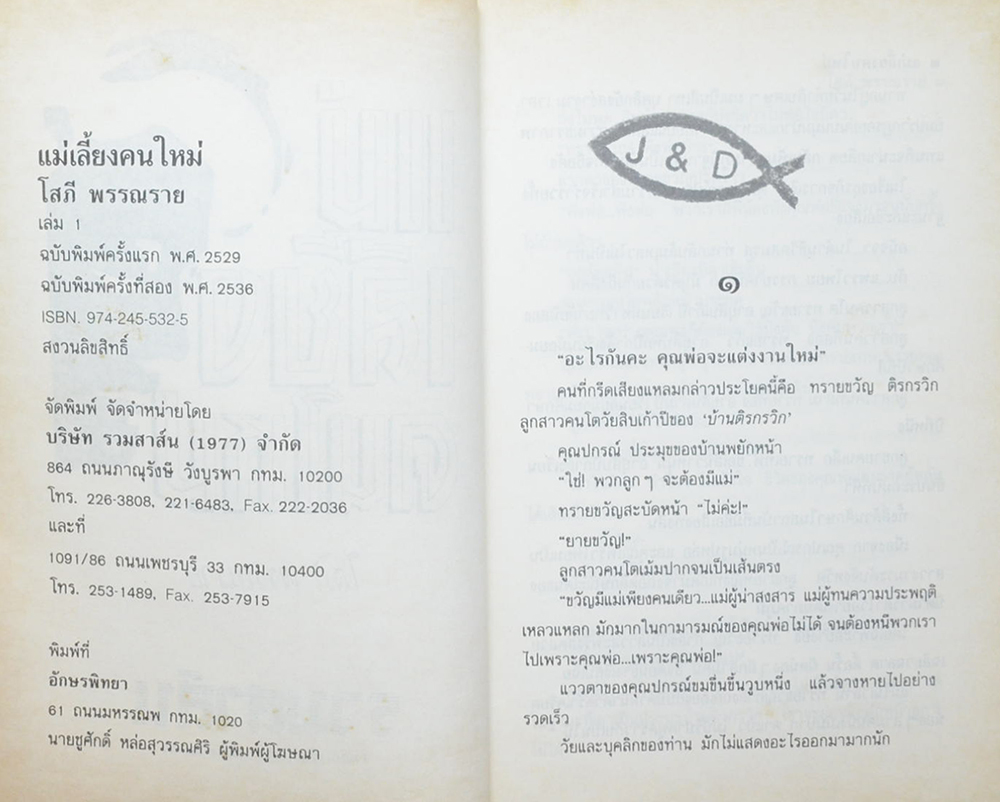 แม่เลี้ยงคนใหม่
โสภี พรรณราย
เล่ม 1
ฉบับพิมพ์ครั้งแรก พ.ศ. 2529
ฉบับพิมพ์ครั้งที่สอง พ.ศ. 2536
ISBN. 974-245-532-5
สงวนลิขสิทธิ์
จัดพิมพ์ จัดจำหน่ายโดย
บริษัท รวมสาส์น (1977) จำกัด
864 ถนนภาณุรังษี วังบูรพา กทม. 10200
โทร. 226-3808, 221-6483, Fax. 222-2036
และที่
1091/86 ถนนเพชรบุรี 33 กทม. 10400
โทร. 253-1489, Fax. 253-7915
พิมพ์ที่
อักษรพิทยา
61 ถนนมหรรณพ กทม. 1020
นายชูศักดิ์ หล่อสุวรรณศิริ ผู้พิมพ์ผู้โฆษณา
J & D
๑
"อะไรกันคะ คุณพ่อจะแต่งงานใหม่"
คนที่กรีดเสียงแหลมกล่าวประโยคนี้คือ ทรายขวัญ ติรกรวิก
ลูกสาวคนโตวัยสิบเก้าปีของ 'บ้านติรกรวิก'
คุณปกรณ์ ประมุขของบ้านพยักหน้า
"ใช่! พวกลูกๆ จะต้องมีแม่"
ทรายขวัญสะบัดหน้า "ไม่ค่ะ!"
"ยายขวัญ!"
ลูกสาวคนโตเม้มปากจนเป็นเส้นตรง
"ขวัญมีแม่เพียงคนเดียว...แม่ผู้น่าสงสาร แม่ผู้ทนความประพฤติ
เหลวแหลก มักมากในกามารมณ์ของคุณพ่อไม่ได้ จนต้องหนีพวกเรา
ไปเพราะคุณพ่อ...เพราะคุณพ่อ!"
แววตาของคุณปกรณ์ขมขื่นขึ้นวูบหนึ่ง แล้วจางหายไปอย่าง
รวดเร็ว
วัยและบุคลิกของท่าน มักไม่แสดงอะไรออกมามากนัก